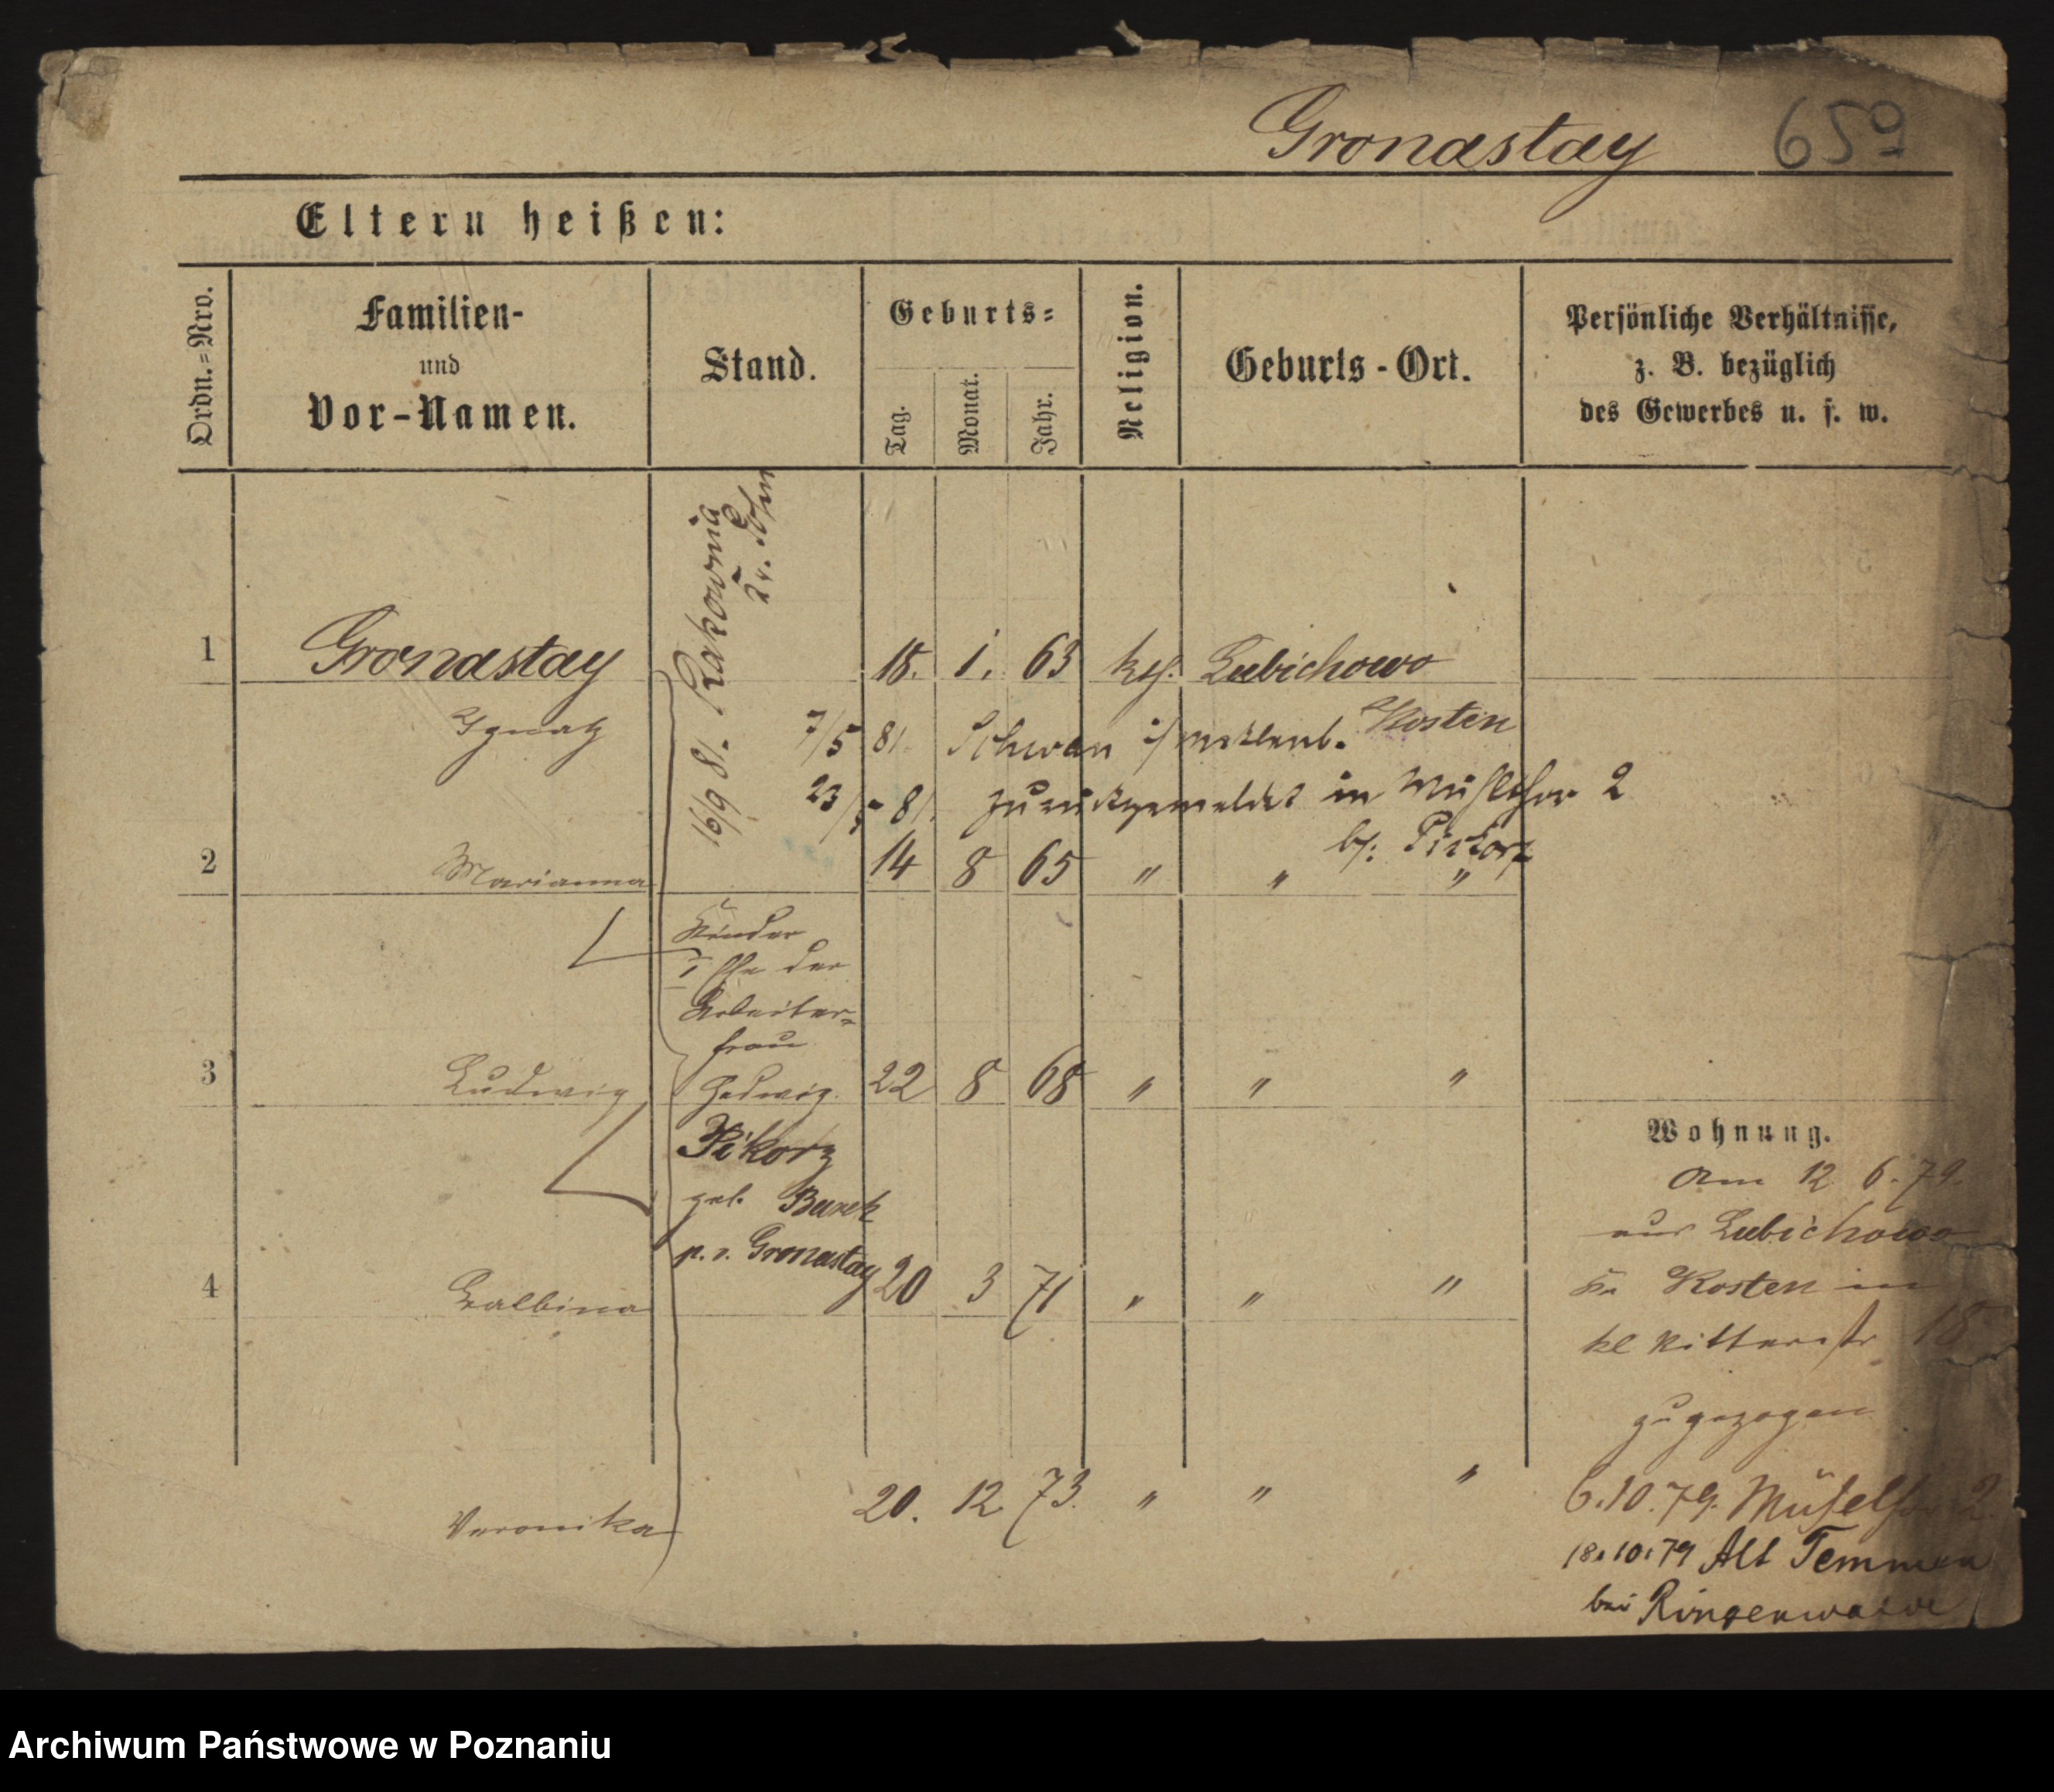 Gronastay 659
Eltern heißen:
Ordn.=Nro.
Familien-
und
Vor-Namen.
Stand.
Geburts=
Tag.
Monat.
Jahr.
Religion.
Geburts-Ort.
Persönliche Verhältnisse,
z. B. bezüglich
des Gewerbes u. s. w.
16/9 81. Rakownia
Kr.
1 Gronastay 18. 1. 63 kth. Lubichowo
Ignatz Kosten
7/5 81. Schwan i/ mecklenb.
23/5 81. zurückgemeldet in Mühlthor 2
bei: Piekorz
2 Marianna 14 8 65 " " "
Kinder
I Ehe der
Arbeiter-
frau
3 Ludwig Hedwig. 22 8 68 " " "
Pikorz
geb. Burek
p. v. Gronastay
4 Balbina 20 3 71 " " "
Veronika 20. 12 73. " " "
Wohnung.
Am 12 6. 79.
aus Lubichowo
Kr Kosten in
kl Ritterstr 18
zugezogen
6.10.79. Mühlthor 2.
18.10.79 Alt Temmen
bei Ringenwalde
Archiwum Państwowe w Poznaniu